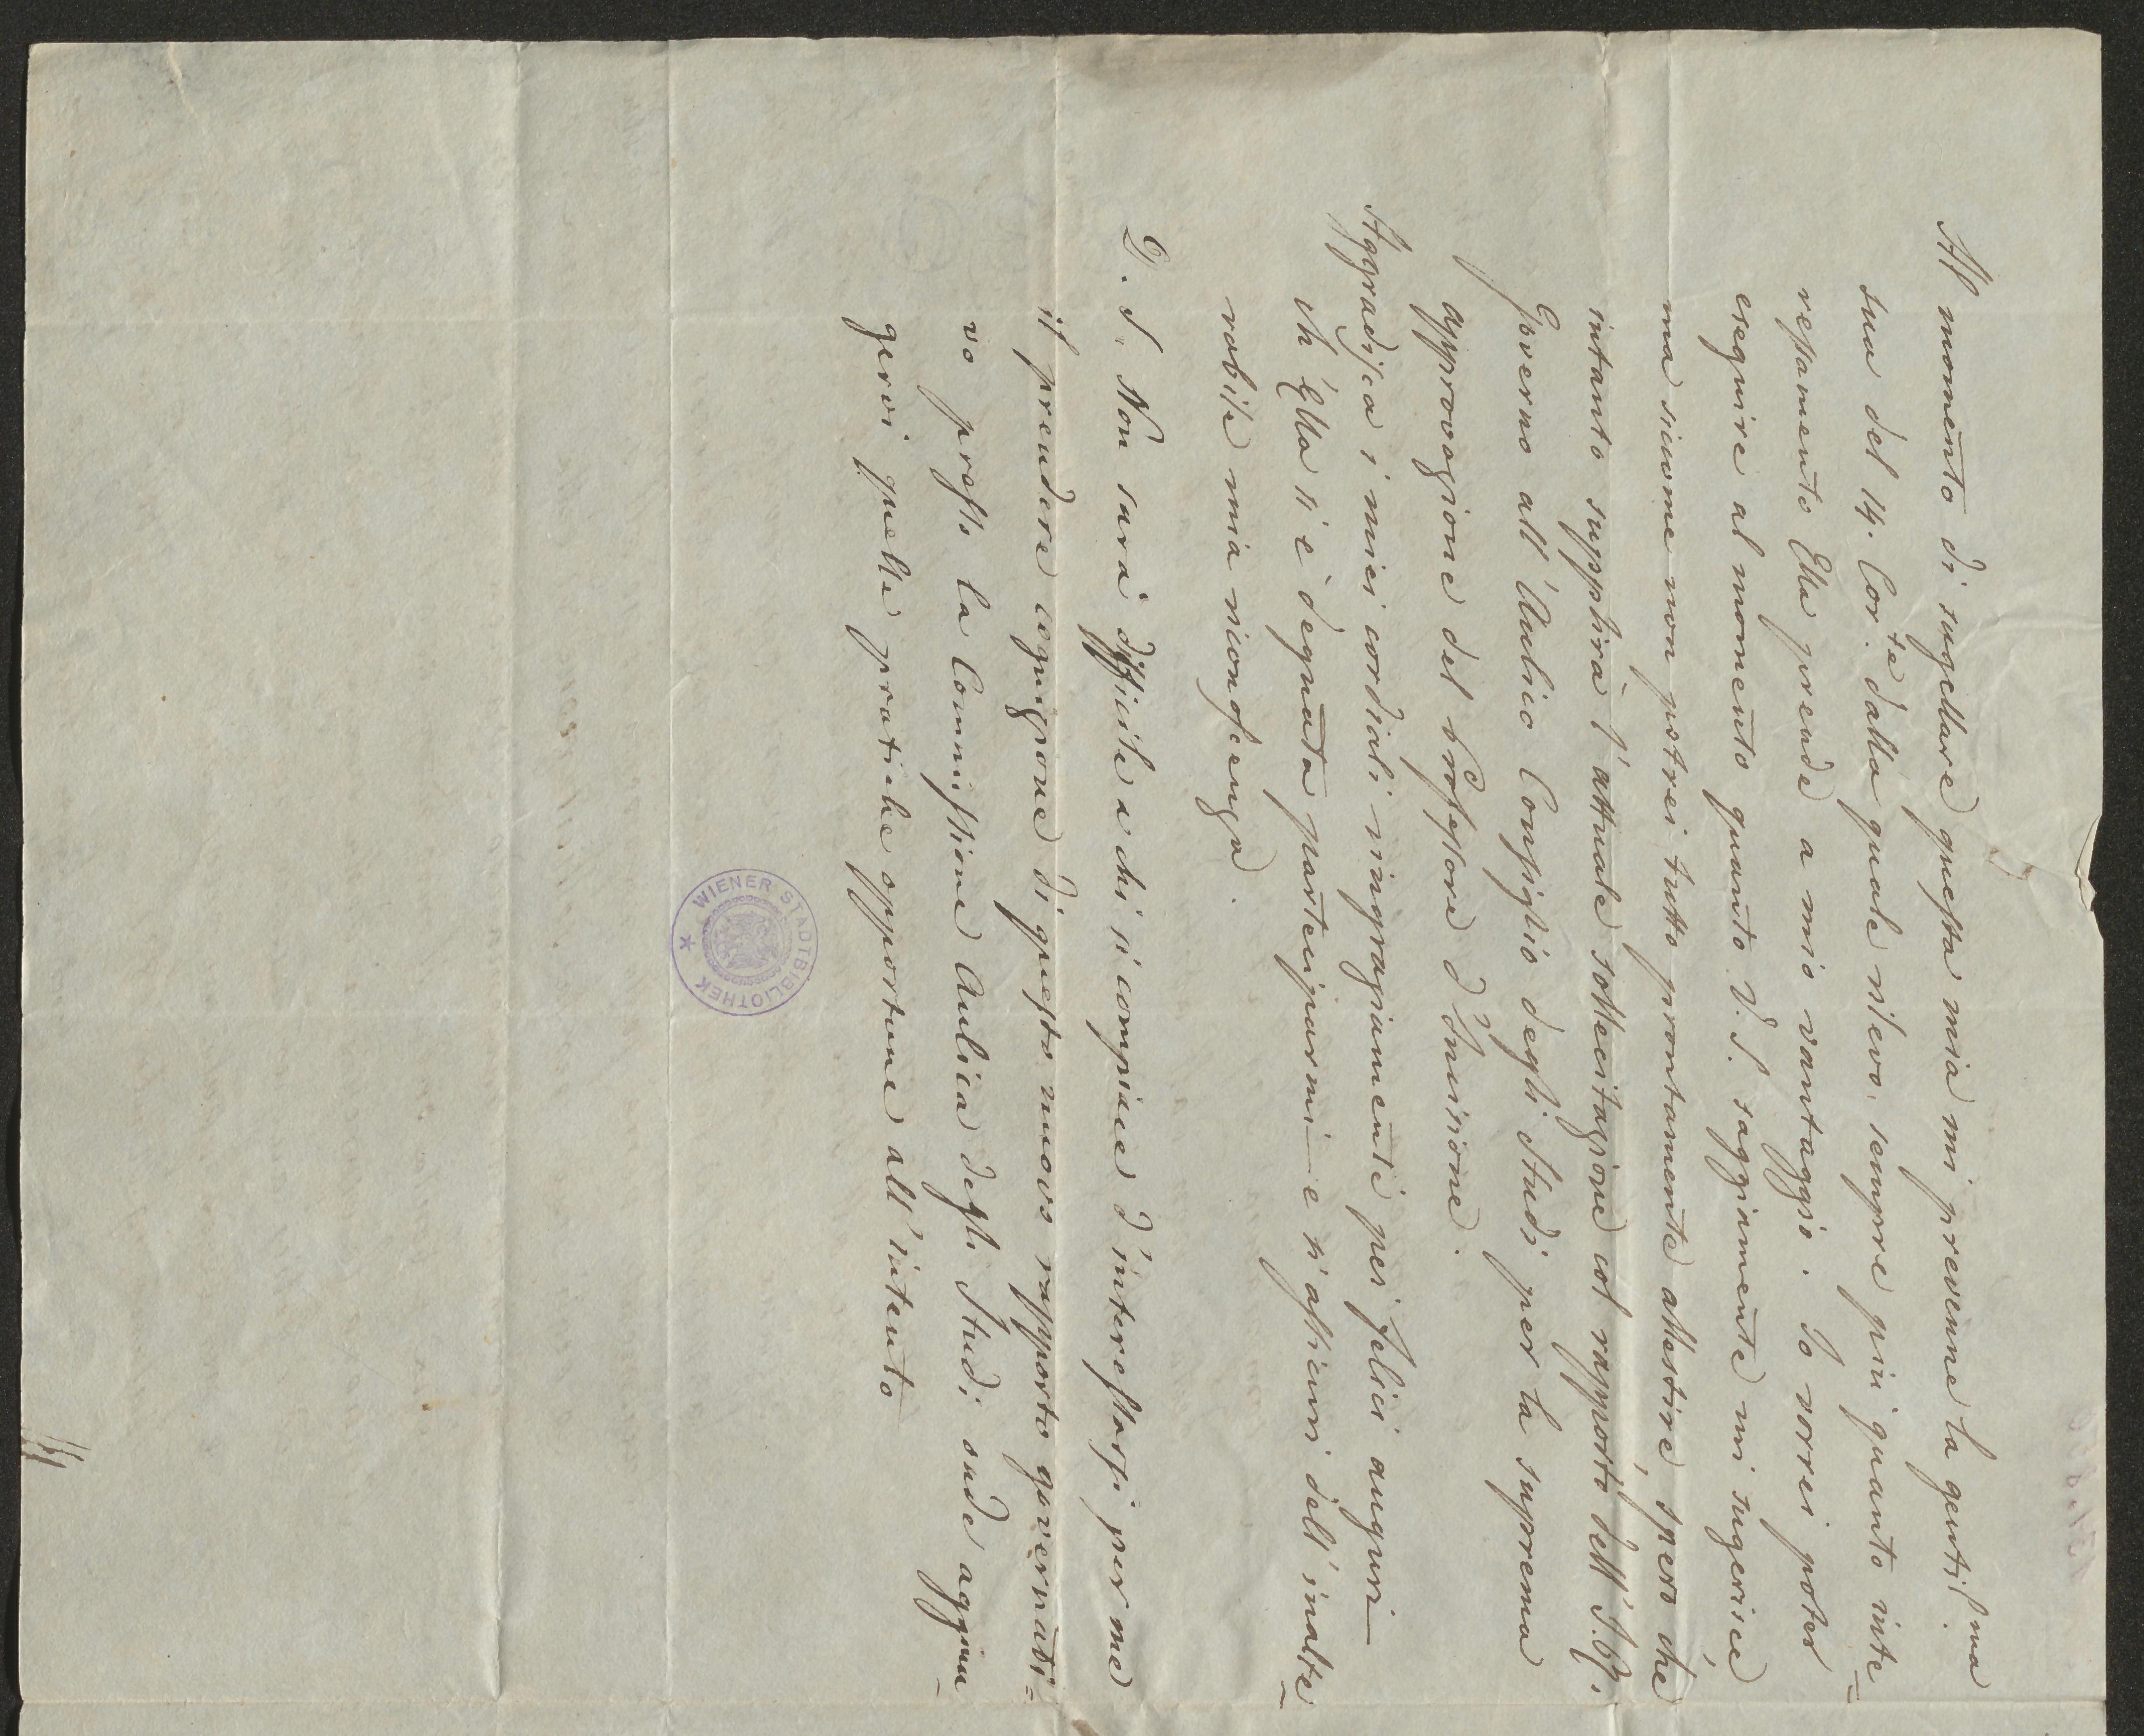 Al momento di sugellare questa mia mi prevenne la gentil.ma
sua del 14. Cor.te dalla quale rilevo, sempre più quanto inte=
ressamento Ella prende a mio vantaggio. Io vorrei poter
eseguire al momento quanto V. S. saggiamente mi sugerisce,
ma siccome non potrei tutto prontamente allestire, spero che
intanto supplirà l'attuale sollecitazione col rapporto dell' I. R.
Governo all' Aulico Consiglio degli Studi per la suprema
approvazione del Professore d'Incisione.
Aggradisca i miei cordiali ringraziamenti pei felici auguri
ch' Ella si è degnata parteciparmi e n'assicuri dell' inalte=
rabile mia riconoscenza.
P. S. Non sarà difficile a chi si compiace d'interessarsi per me
il prendere cognizione di questo nuovo rapporto governati=
vo presso la Commissione Aulica degli Studi, onde aggiun=
gervi quelle pratiche opportune all' intento
WIENER STADTBIBLIOTHEK